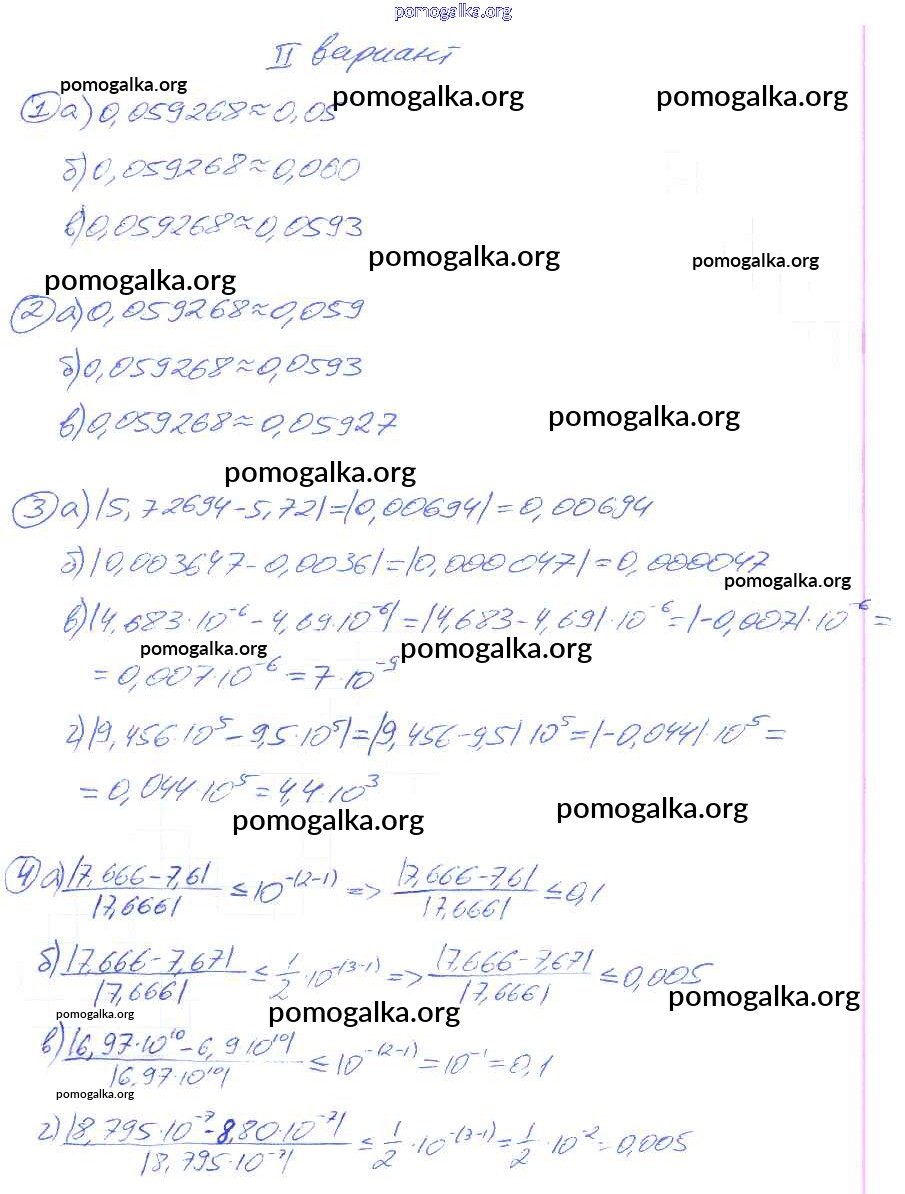 pomogalka.org
II вариант
pomogalka.org pomogalka.org pomogalka.org
1 а) 0,059268≈0,05
б) 0,059268≈0,060
в) 0,059268≈0,0593
pomogalka.org pomogalka.org
pomogalka.org
2 а) 0,059268≈0,059
б) 0,059268≈0,0593
в) 0,059268≈0,05927
pomogalka.org
pomogalka.org
3 а) |5,72694-5,72|=|0,00694|=0,00694
б) |0,003647-0,0036|=|0,000047|=0,000047
pomogalka.org
в) |4,683·10⁻⁶-4,69·10⁻⁶|=|4,683-4,69|·10⁻⁶=|-0,007|·10⁻⁶=
pomogalka.org pomogalka.org
=0,007·10⁻⁶=7·10⁻⁹
г) |9,456·10⁵-9,5·10⁵|=|9,456-9,5|10⁵=|-0,044|·10⁵=
=0,044·10⁵=4,4·10³
pomogalka.org pomogalka.org
4 а) |7,666-7,6|/|7,666| ≤ 10^-(2-1) => |7,666-7,6|/|7,666| ≤ 0,1
б) |7,666-7,67|/|7,666| ≤ 1/2·10^-(3-1) => |7,666-7,67|/|7,666| ≤ 0,005
pomogalka.org pomogalka.org pomogalka.org
в) |6,97·10¹⁰-6,9·10¹⁰|/|6,97·10¹⁰| ≤ 10^-(2-1)=10⁻¹=0,1
pomogalka.org
г) |8,795·10⁻⁷-8,80·10⁻⁷|/|8,795·10⁻⁷| ≤ 1/2·10^-(3-1)=1/2·10⁻²=0,005